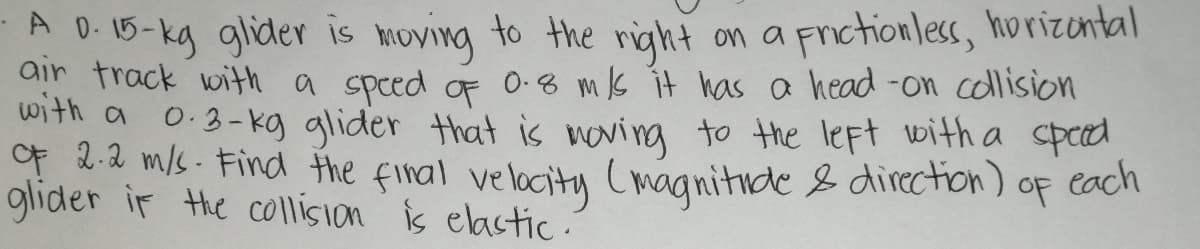 A 0.15-kg glider is moving to the right on a frictionless, horizontal
air track with a speed of 0.8 m/s it has a head-on collision
with a 0.3-kg glider that is moving to the left with a speed
of 2.2 m/s. Find the final velocity (magnitude & direction) of each
glider if the collision is elastic.